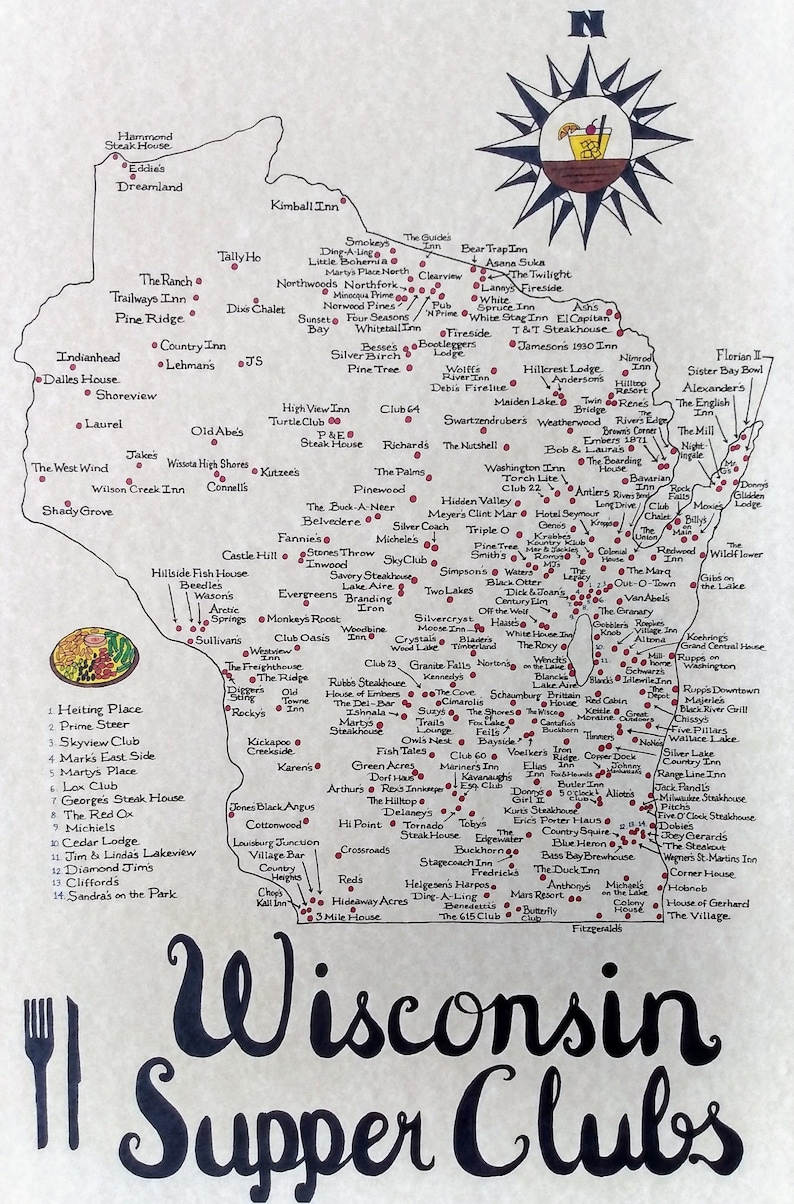 N
Hammond
Steak House
Eddie's
Dreamland
Kimball Inn
Tally Ho
The Ranch
Trailways Inn
Pine Ridge
Dix's Chalet
Smokey's
Ding-A-Ling
Little Bohemia
Marty's Place North
The Guide's
Inn
Bear Trap Inn
Asana Suka
The Twilight
Lanny's Fireside
Clearview
Northwoods
Northfork
Minocqua Prime
Norwood Pines
Four Seasons
Whitetail Inn
Pub
'N Prime
White
Spruce Inn
White Stag Inn
Sunset
Bay
Ash's
El Capitan
T & T Steakhouse
Fireside
Country Inn
Lehman's
JS
Indianhead
Dalles House
Shoreview
Besse's
Silver Birch
Pine Tree
Bootleggers
Lodge
Jameson's 1930 Inn
Wolff's
River Inn
Debi's Firelite
Hillcrest Lodge
Anderson's
Maiden Lake
Nimrod
Inn
Hilltop
Resort
Twin
Bridge
Rene's
Florian II
Sister Bay Bowl
Alexander's
The English
Inn
The Mill
Night-
ingale
Mr.
G's
Donny's
Glidden
Lodge
Laurel
Old Abe's
High View Inn
Turtle Club
P & E
Steak House
Club 64
Swartzendruber's
Weatherwood
The
River's Edge
Brown's Corner
Embers 1871
Bob & Laura's
The Boarding
House
Richard's
The Nutshell
The West Wind
Jake's
Wilson Creek Inn
Wissota High Shores
Connell's
Kutzee's
Shady Grove
The Palms
Pinewood
Washington Inn
Torch Lite
Club 22
Antlers
Bavarian
Inn
River's Bend
Long Drive
Rock
Falls
Moxie's
Club
Chalet
The
Union
Billy's
on
Main
Redwood
Inn
The
Wildflower
The Buck-A-Neer
Belvedere
Hidden Valley
Meyer's Clint Mar
Hotel Seymour
Geno's
Kropp's
Krabbe's
Kountry Klub
Mar & Jackie's
Romy's
MJ's
Colonial
House
Triple O
Pine Tree
Smith's
Waters
Silver Coach
Michele's
Fannie's
Castle Hill
Stones Throw
Inwood
Sky Club
Savory Steakhouse
Lake Aire
Branding
Iron
Evergreens
Simpson's
Two Lakes
Black Otter
Dick & Joan's
Century Elm
Off the Wolf
The
Legacy
The Marq
Out-O-Town
Van Abel's
Gib's on
the Lake
The Granary
1
2
3
4
5
6
7
8
9
10
11
Hillside Fish House
Beedles
Wason's
Arctic
Springs
Sullivan's
Monkey's Roost
Club Oasis
Westview
Inn
The Freighthouse
The Ridge
Digger's
Sting
Rocky's
Old
Towne
Inn
Woodbine
Inn
Silvercryst
Moose Inn
Crystal's
Wood Lake
Blader's
Timberland
Haase's
White House Inn
The Roxy
Wendt's
on the Lake
Blanck's
Lake Aire
Blanck's
Gobbler's
Knob
Roepke's
Village Inn
Altona
Mill-
home
Schwarz's
Idlewile Inn
Koehring's
Grand Central House
Rupp's on
Washington
Club 23
Granite Falls
Kennedy's
Norton's
Rubb's Steakhouse
House of Embers
The Del-Bar
Ishnala
Marty's
Steakhouse
The Cove
Cimaroli's
Suzy's
Trails
Lounge
Owl's Nest
Fish Tales
Schaumburg
The Shores
of
Fox Lake
Feil's
Bayside
Brittain
House
The Wisco
Cantafio's
Buckhorn
Red Cabin
Kettle
Moraine
Great
Outdoors
The
Depot
Rupp's Downtown
Majerle's
Black River Grill
Chissy's
Five Pillars
Wallace Lake
Timmer's
NoNo's
Silver Lake
Country Inn
Kickapoo
Creekside
Karen's
Green Acres
Dorf Haus
Arthur's
Rex's Innkeeper
The Hilltop
Delaney's
Hi Point
Club 60
Mariner's Inn
Kavanaugh's
Esq. Club
Toby's
Tornado
Steak House
Voelker's
Iron
Ridge
Inn
Elias
Inn
Fox & Hounds
Copper Dock
Johnny
Manhattan's
Range Line Inn
Butler Inn
5 O'Clock
Club
Donny's
Girl II
Kurt's Steakhouse
Aliota's
Jack Pandl's
Milwaukee Steakhouse
Pitch's
Five O'Clock Steakhouse
Dobie's
Joey Gerard's
The Steakout
Wegner's St. Martins Inn
Jones' Black Angus
Cottonwood
Louisburg Junction
Village Bar
Country
Heights
Chop's
Kall Inn
3 Mile House
Crossroads
Red's
Hideaway Acres
The
Edgewater
Buckhorn
Stagecoach Inn
Fredrick's
Eric's Porter Haus
Country Squire
12
13
14
Blue Heron
Bass Bay Brewhouse
The Duck Inn
Helgesen's Harpos
Ding-A-Ling
Benedetti's
The 615 Club
Butterfly
Club
Mars Resort
Anthony's
Michael's
on the Lake
Colony
House
Corner House
Hobnob
House of Gerhard
The Village
Fitzgerald's
1 Heiting Place
2 Prime Steer
3 Skyview Club
4 Mark's East Side
5 Marty's Place
6 Lox Club
7 George's Steak House
8 The Red Ox
9 Michiels
10 Cedar Lodge
11 Jim & Linda's Lakeview
12 Diamond Jim's
13 Clifford's
14 Sandra's on the Park
Wisconsin
Supper Clubs